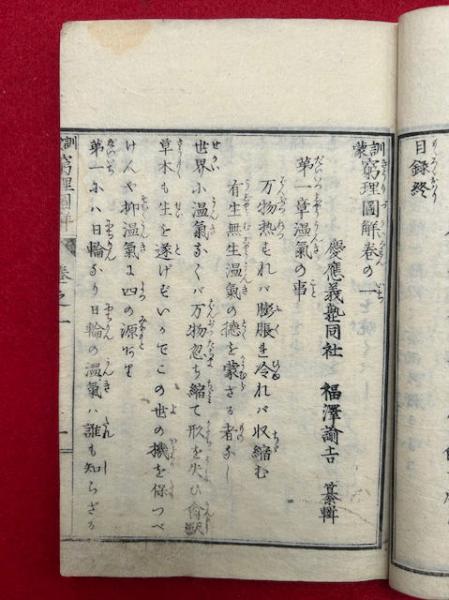 目録終
訓蒙窮理圖解巻の一
慶應義塾同社 福澤諭吉 纂輯
第一章温氣の事
万物熱すれバ膨脹し冷れバ収縮む
有生無生温氣の徳を蒙さる者なし
世界小温氣なくバ万物忽ち縮て形を失ひ禽獣
草木も生を遂げずいかでこの世の機を保つべ
けんや抑温氣に四の源あり
第一ハ日輪なり日輪の温氣ハ誰も知らざる
訓蒙窮理圖解 巻之一 一